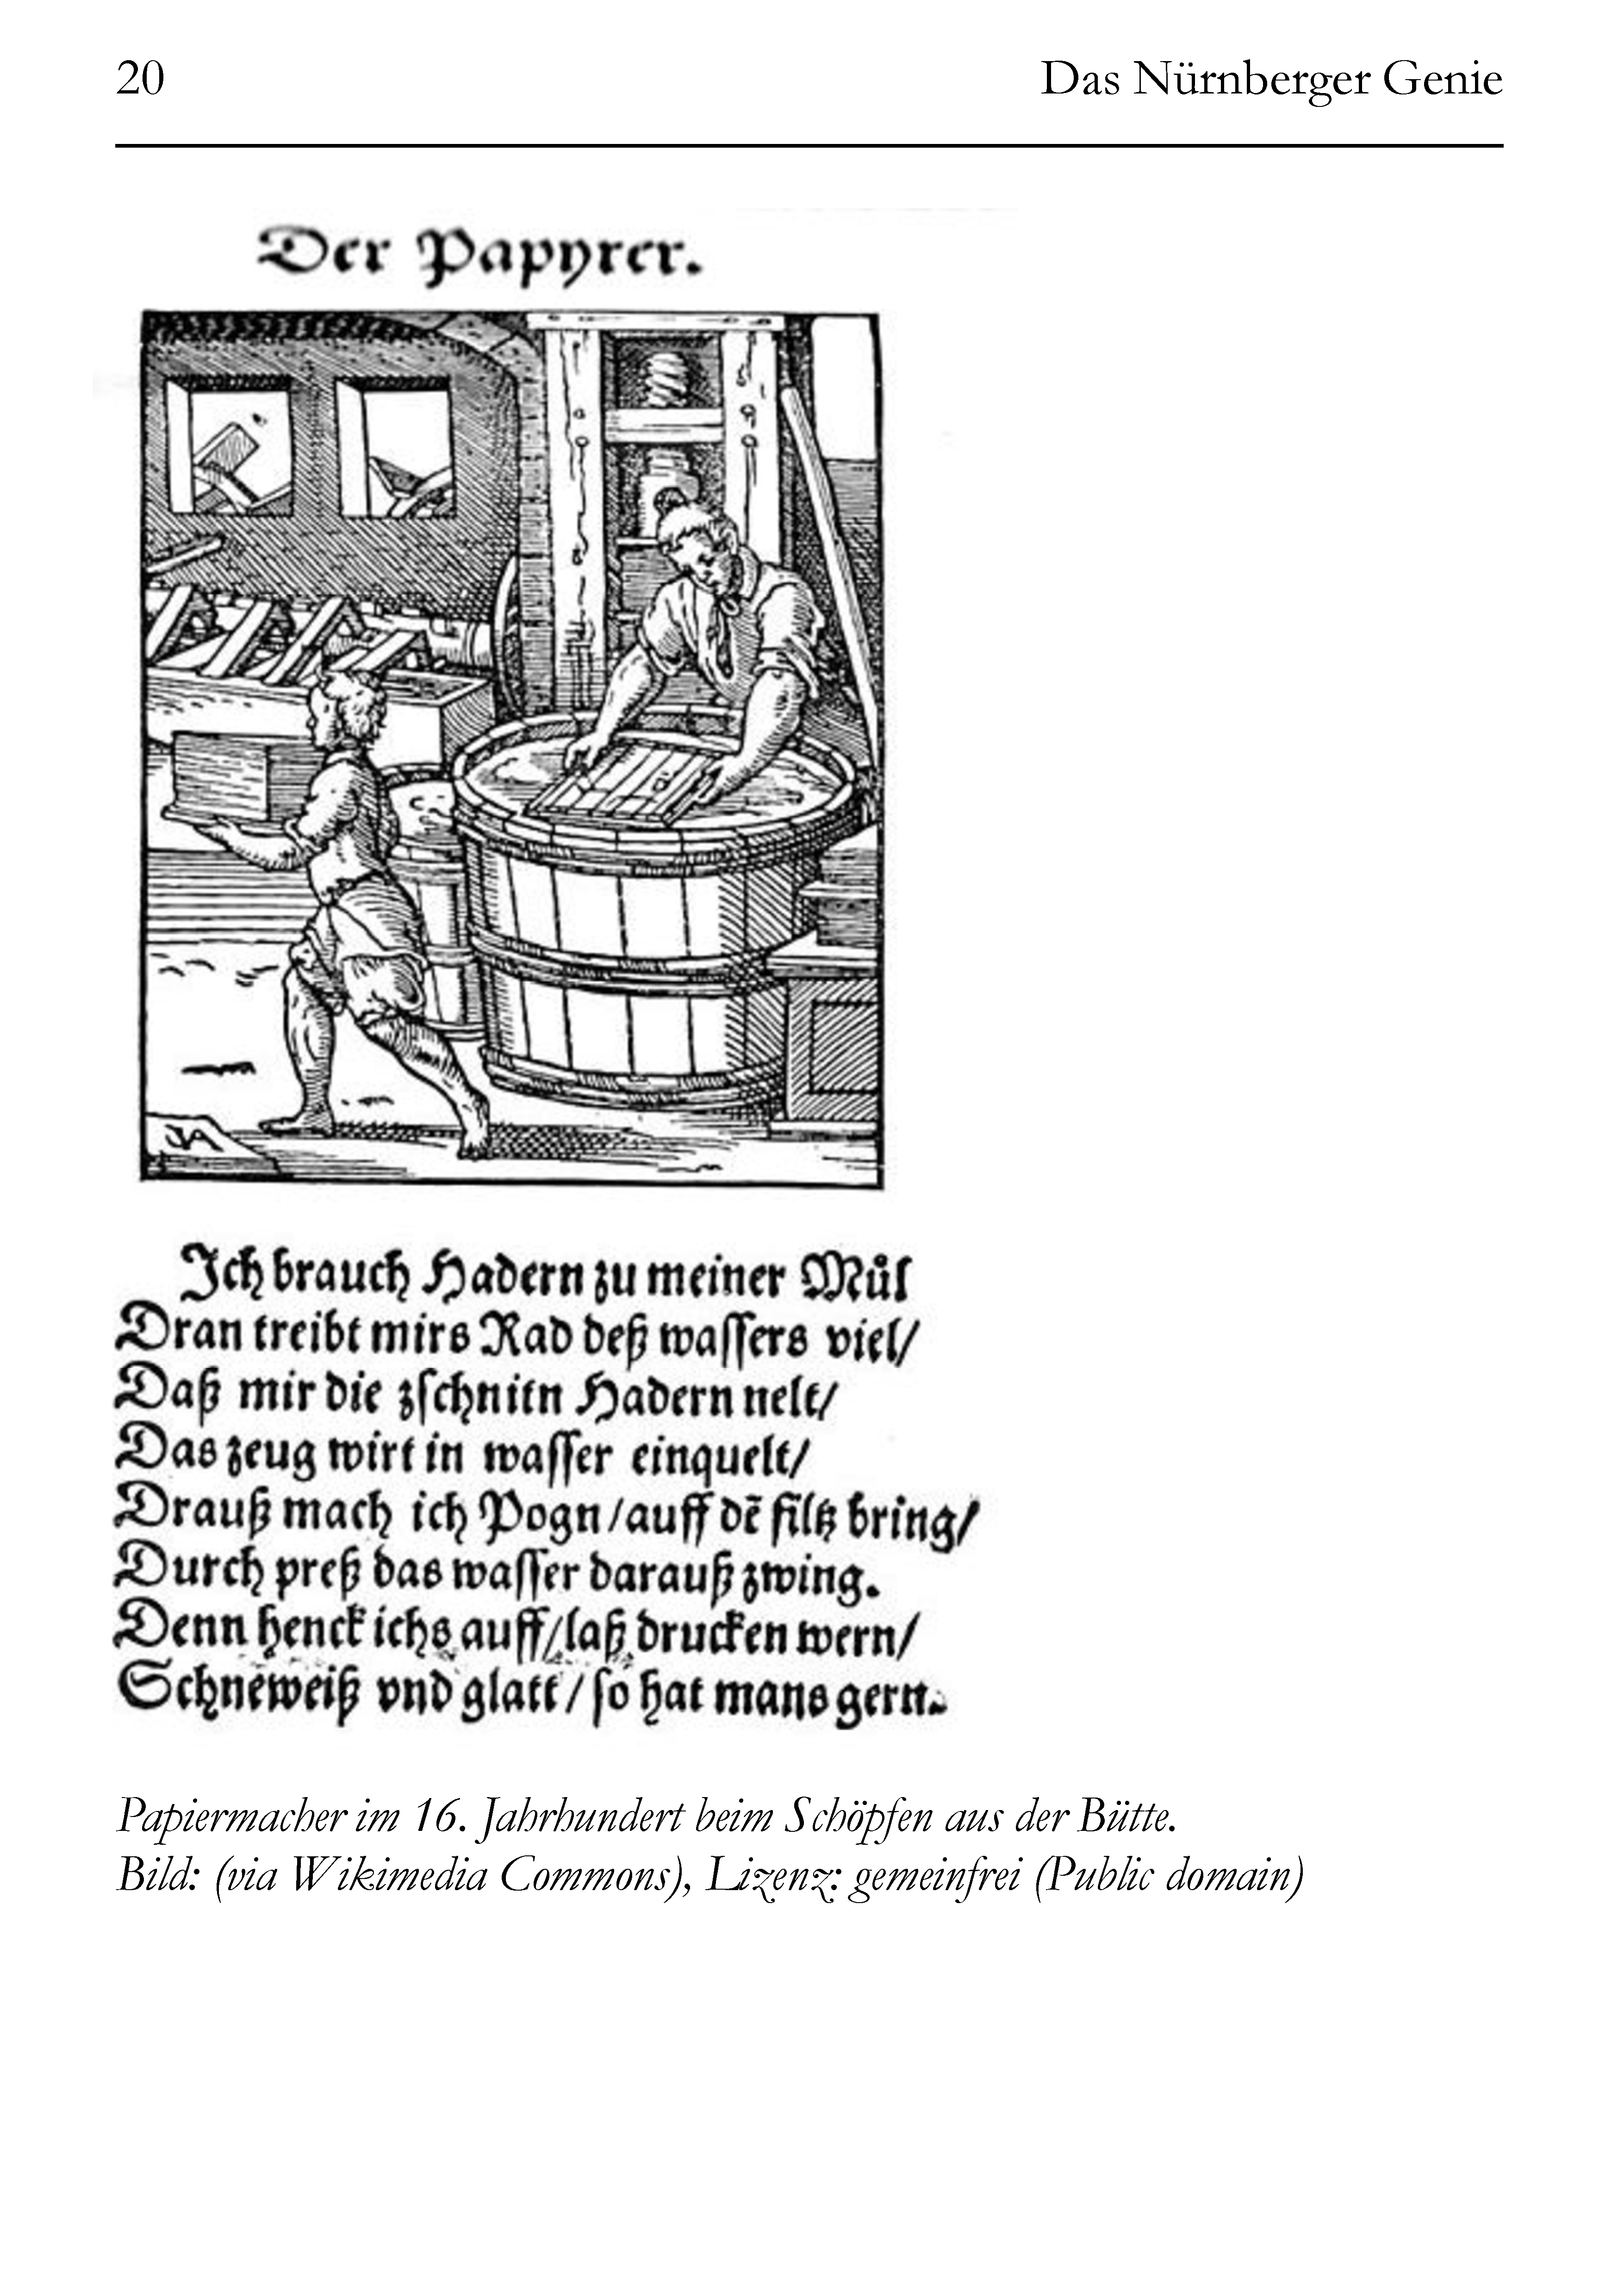 20
Das Nürnberger Genie
Der Papyrer.
JA
Ich brauch Hadern zu meiner Mül
Dran treibt mirs Rad deß wassers viel/
Daß mir die zschnitn Hadern nelt/
Das zeug wirt in wasser einquelt/
Drauß mach ich Pogn/auff dē filtz bring/
Durch preß das wasser darauß zwing.
Denn henck ichs auff/laß drucken wern/
Schneweiß vnd glatt/so hat mans gern.
Papiermacher im 16. Jahrhundert beim Schöpfen aus der Bütte.
Bild: (via Wikimedia Commons), Lizenz: gemeinfrei (Public domain)